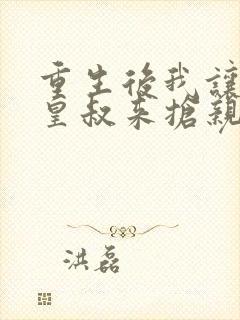 重生後我讓
皇叔來搶親
洪磊